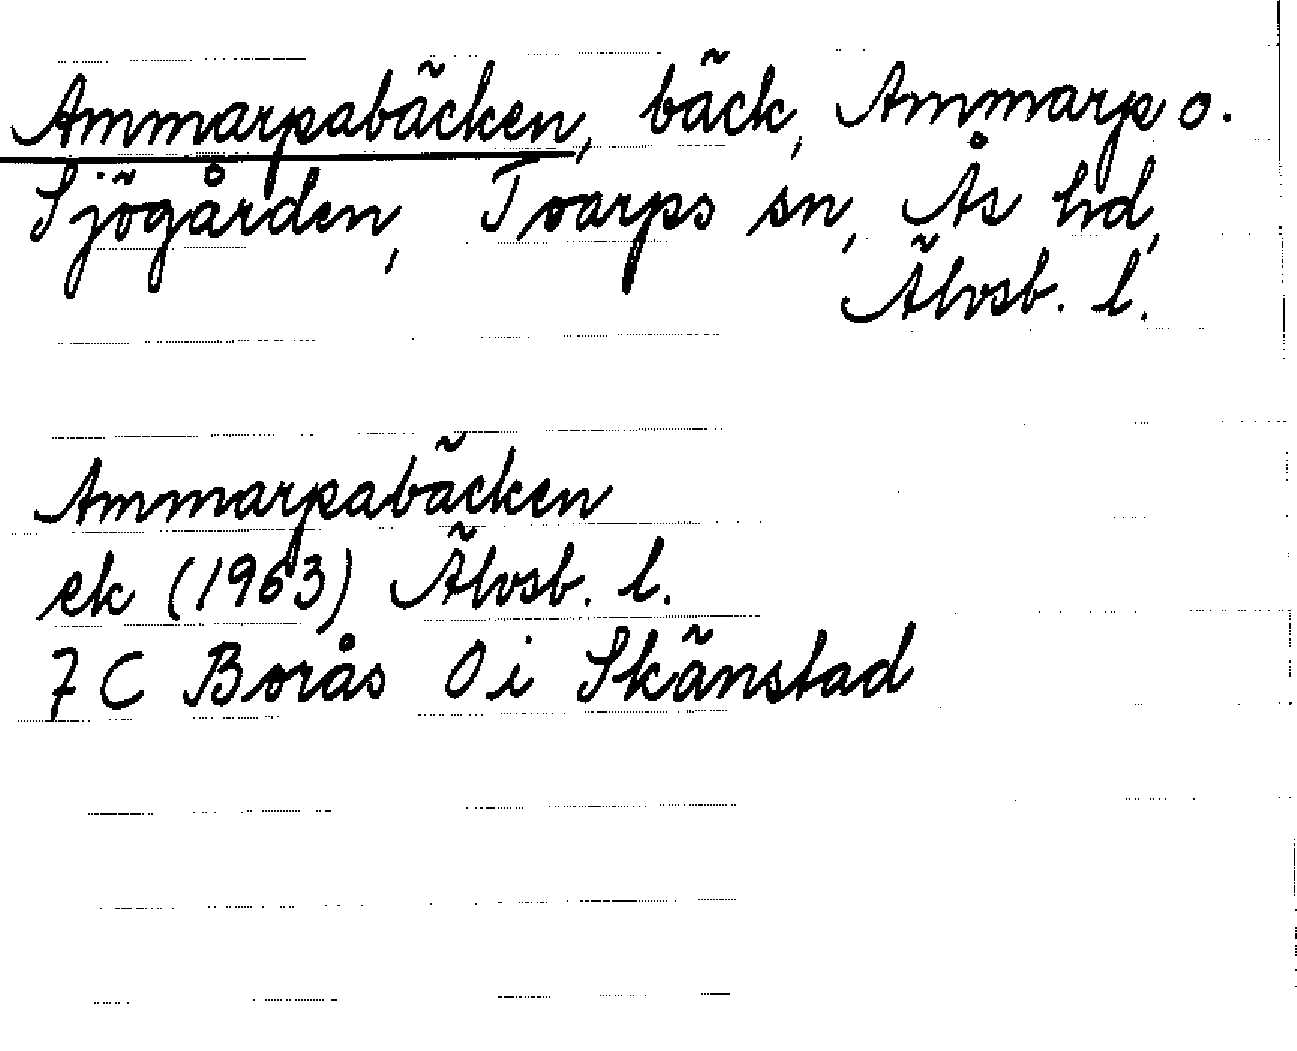 Ammarpabäcken, bäck, Ammarp o.
Sjögården, Toarps sn, Ås hd,
Älvsb. l.
Ammarpabäcken
ek (1963) Älvsb. l.
7 C Borås 0 i Skänstad